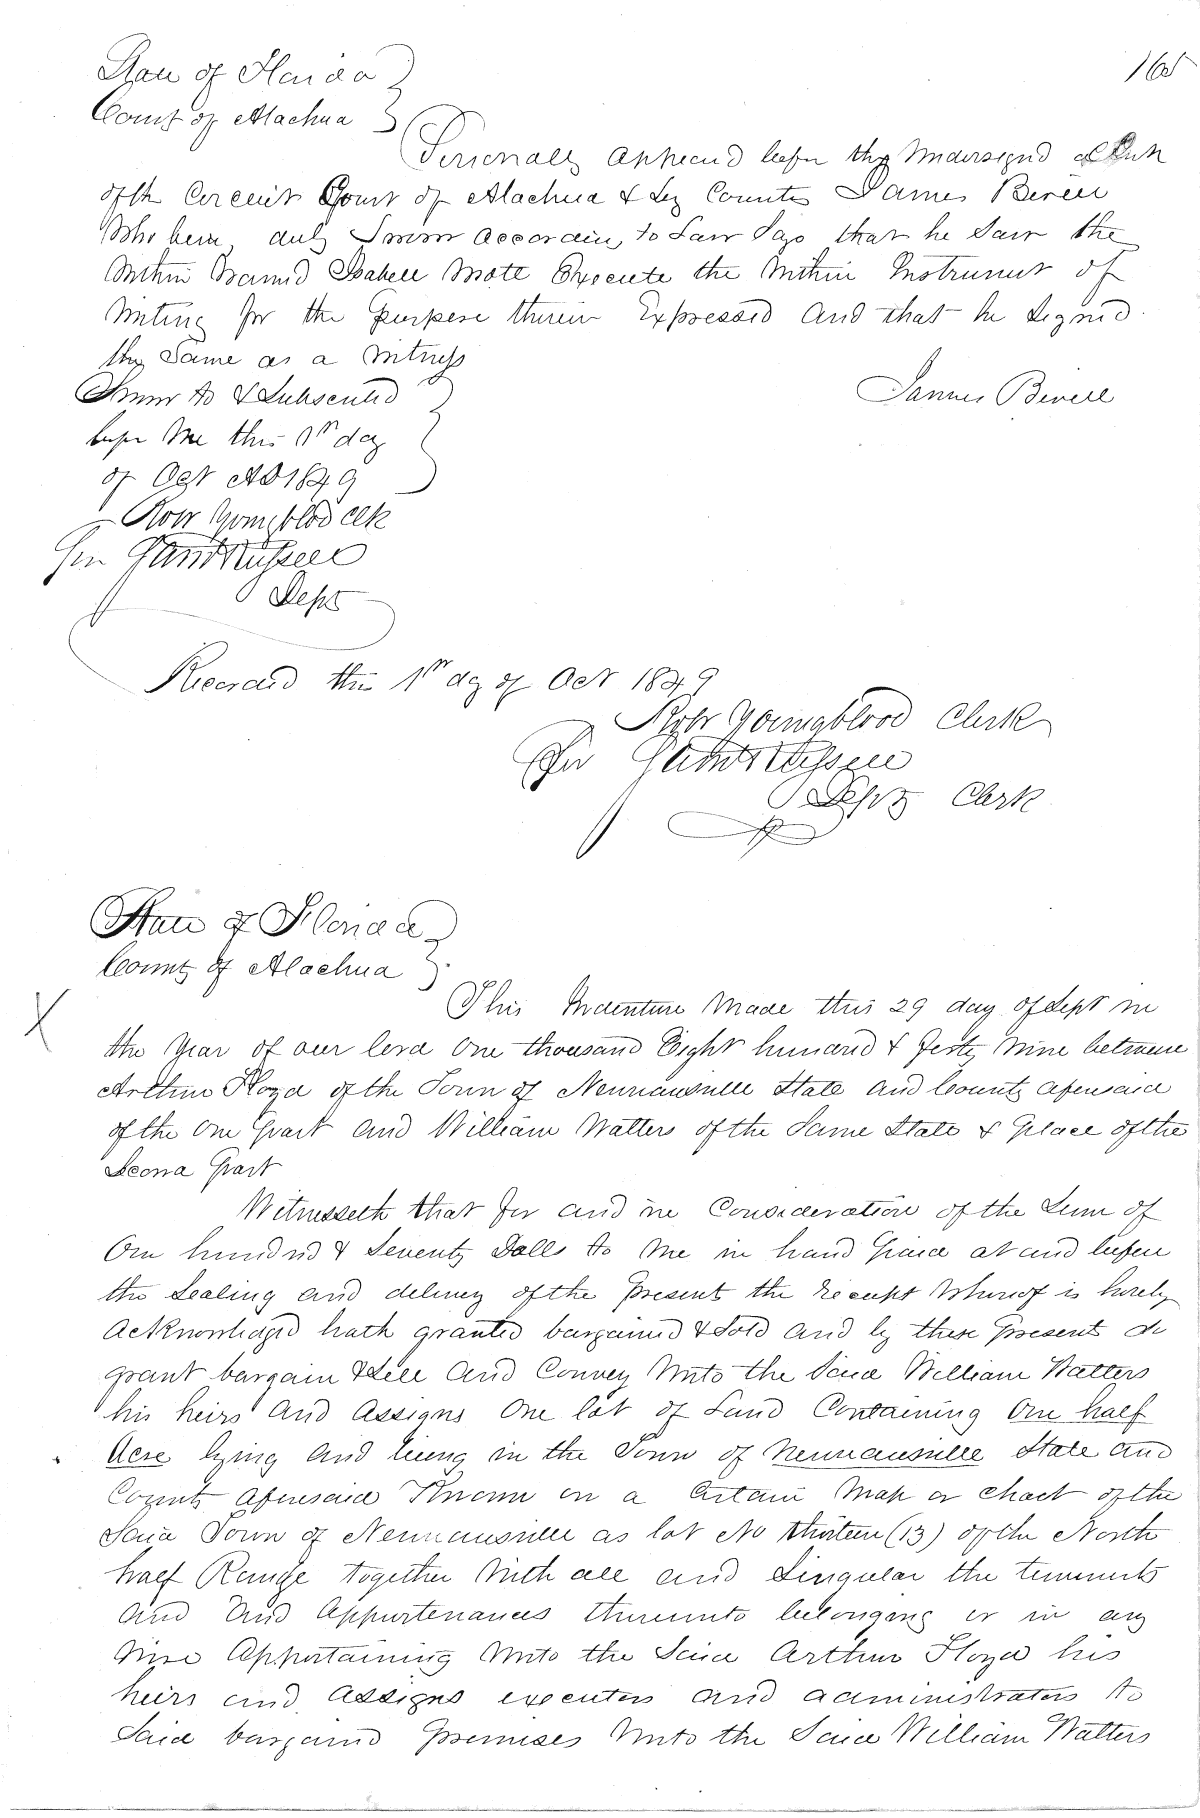 165
State of Florida
County of Alachua
Personally appeard before the Undersignd Clerk
of the Circuit Court of Alachua & Levy Counties James Bevill
Who being duly Sworn according to Law Says that he Saw the
Within Named Isabell Mott Execute the Within Instrument of
Writing for the purpose therein Expressed and that he Signed
the Same as a Witness
James Bevill
Sworn to & Subscribed
before me this 1st day
of Oct AD 1849
Robt Youngblood Clk
Per
Dept
Recorded this 1st day of Oct 1849
Robt Youngblood Clerk
Per
Depty Clerk
State of Florida
County of Alachua
X
This Indenture Made this 29 day of Sept in
the Year of our Lord One thousand Eight hundred & forty nine between
Arthur Floyd of the Town of Newnansville State and County aforesaid
of the One part and William Watters of the Same State & place of the
Second part
Witnesseth that for and in Consideration of the Sum of
One hundred & Seventy Dolls to me in hand paid at and before
the Sealing and delivery of the presents the receipt Whereof is hereby
acknowledged hath granted bargained & Sold and by these presents do
grant bargain & Sell and Convey Unto the Said William Watters
his heirs and assigns One lot of Land Containing One half
Acre lying and being in the Town of Newnansville State and
County aforesaid Known on a Certain Map or Chart of the
Said Town of Newnansville as lot No thirteen (13) of the North
half Range together With all and Singular the tenements
and and appurtenances thereunto belonging or in any
wise Appertaining Unto the Said Arthur Floyd his
heirs and assigns executors and administrators to
Said bargained premises Unto the Said William Watters